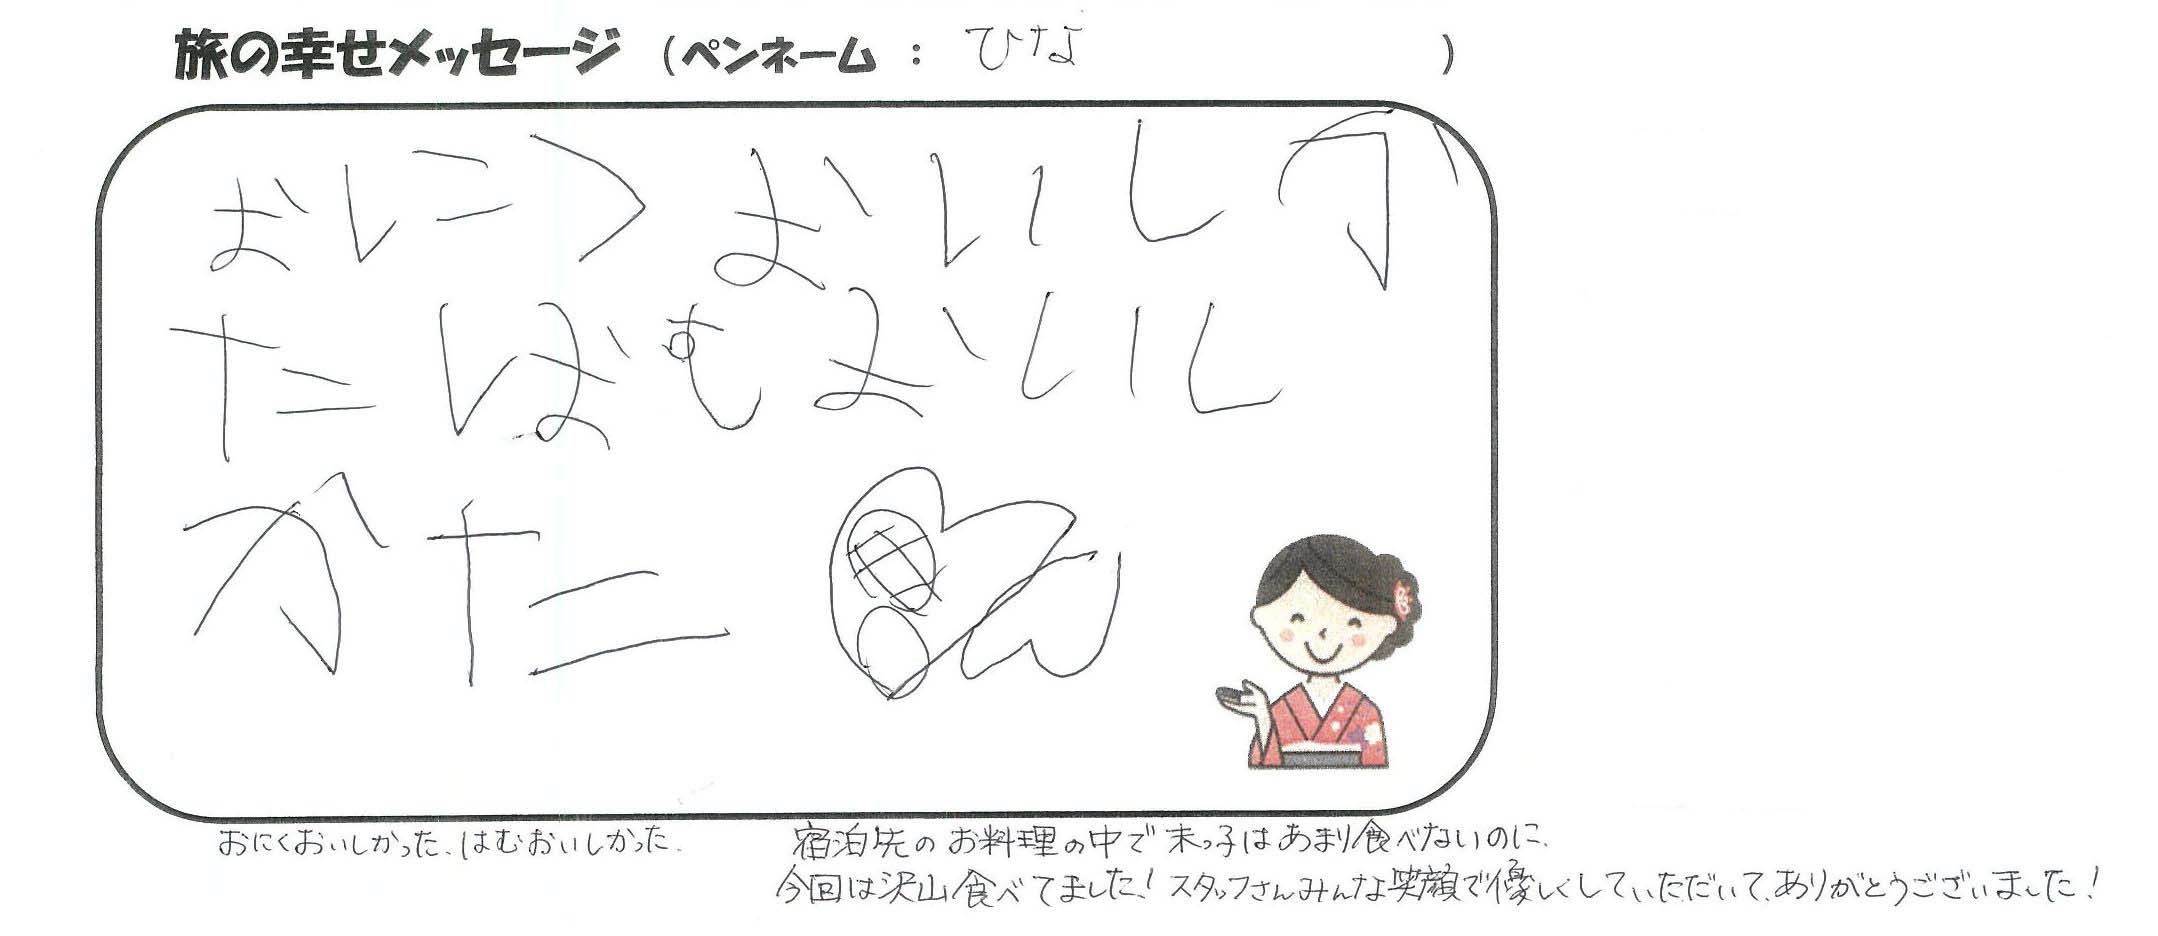 旅の幸せメッセージ (ペンネーム : ひな )
おにくおいしか
たはむおいし
かた
おにくおいしかった、はむおいしかった。
宿泊先のお料理の中で末っ子はあまり食べないのに、
今回は沢山食べてました!スタッフさんみんな笑顔で優しくしていただいて、ありがとうございました!